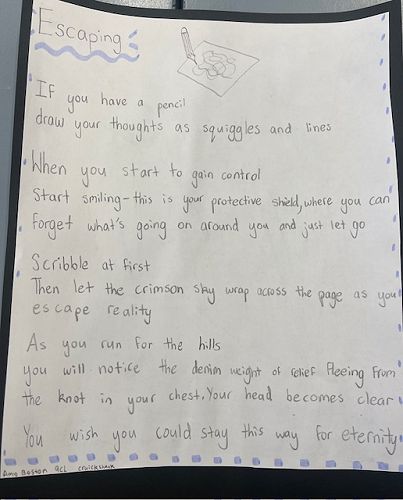 Escaping
If you have a pencil
draw your thoughts as squiggles and lines
When you start to gain control
Start smiling - this is your protective shield, where you can
forget what's going on around you and just let go
Scribble at first
Then let the crimson sky wrap across the page as you
escape reality
As you run for the hills
you will notice the denim weight of relief fleeing from
the knot in your chest. Your head becomes clear
You wish you could stay this way for eternity
Boston 9CL Cruickshank